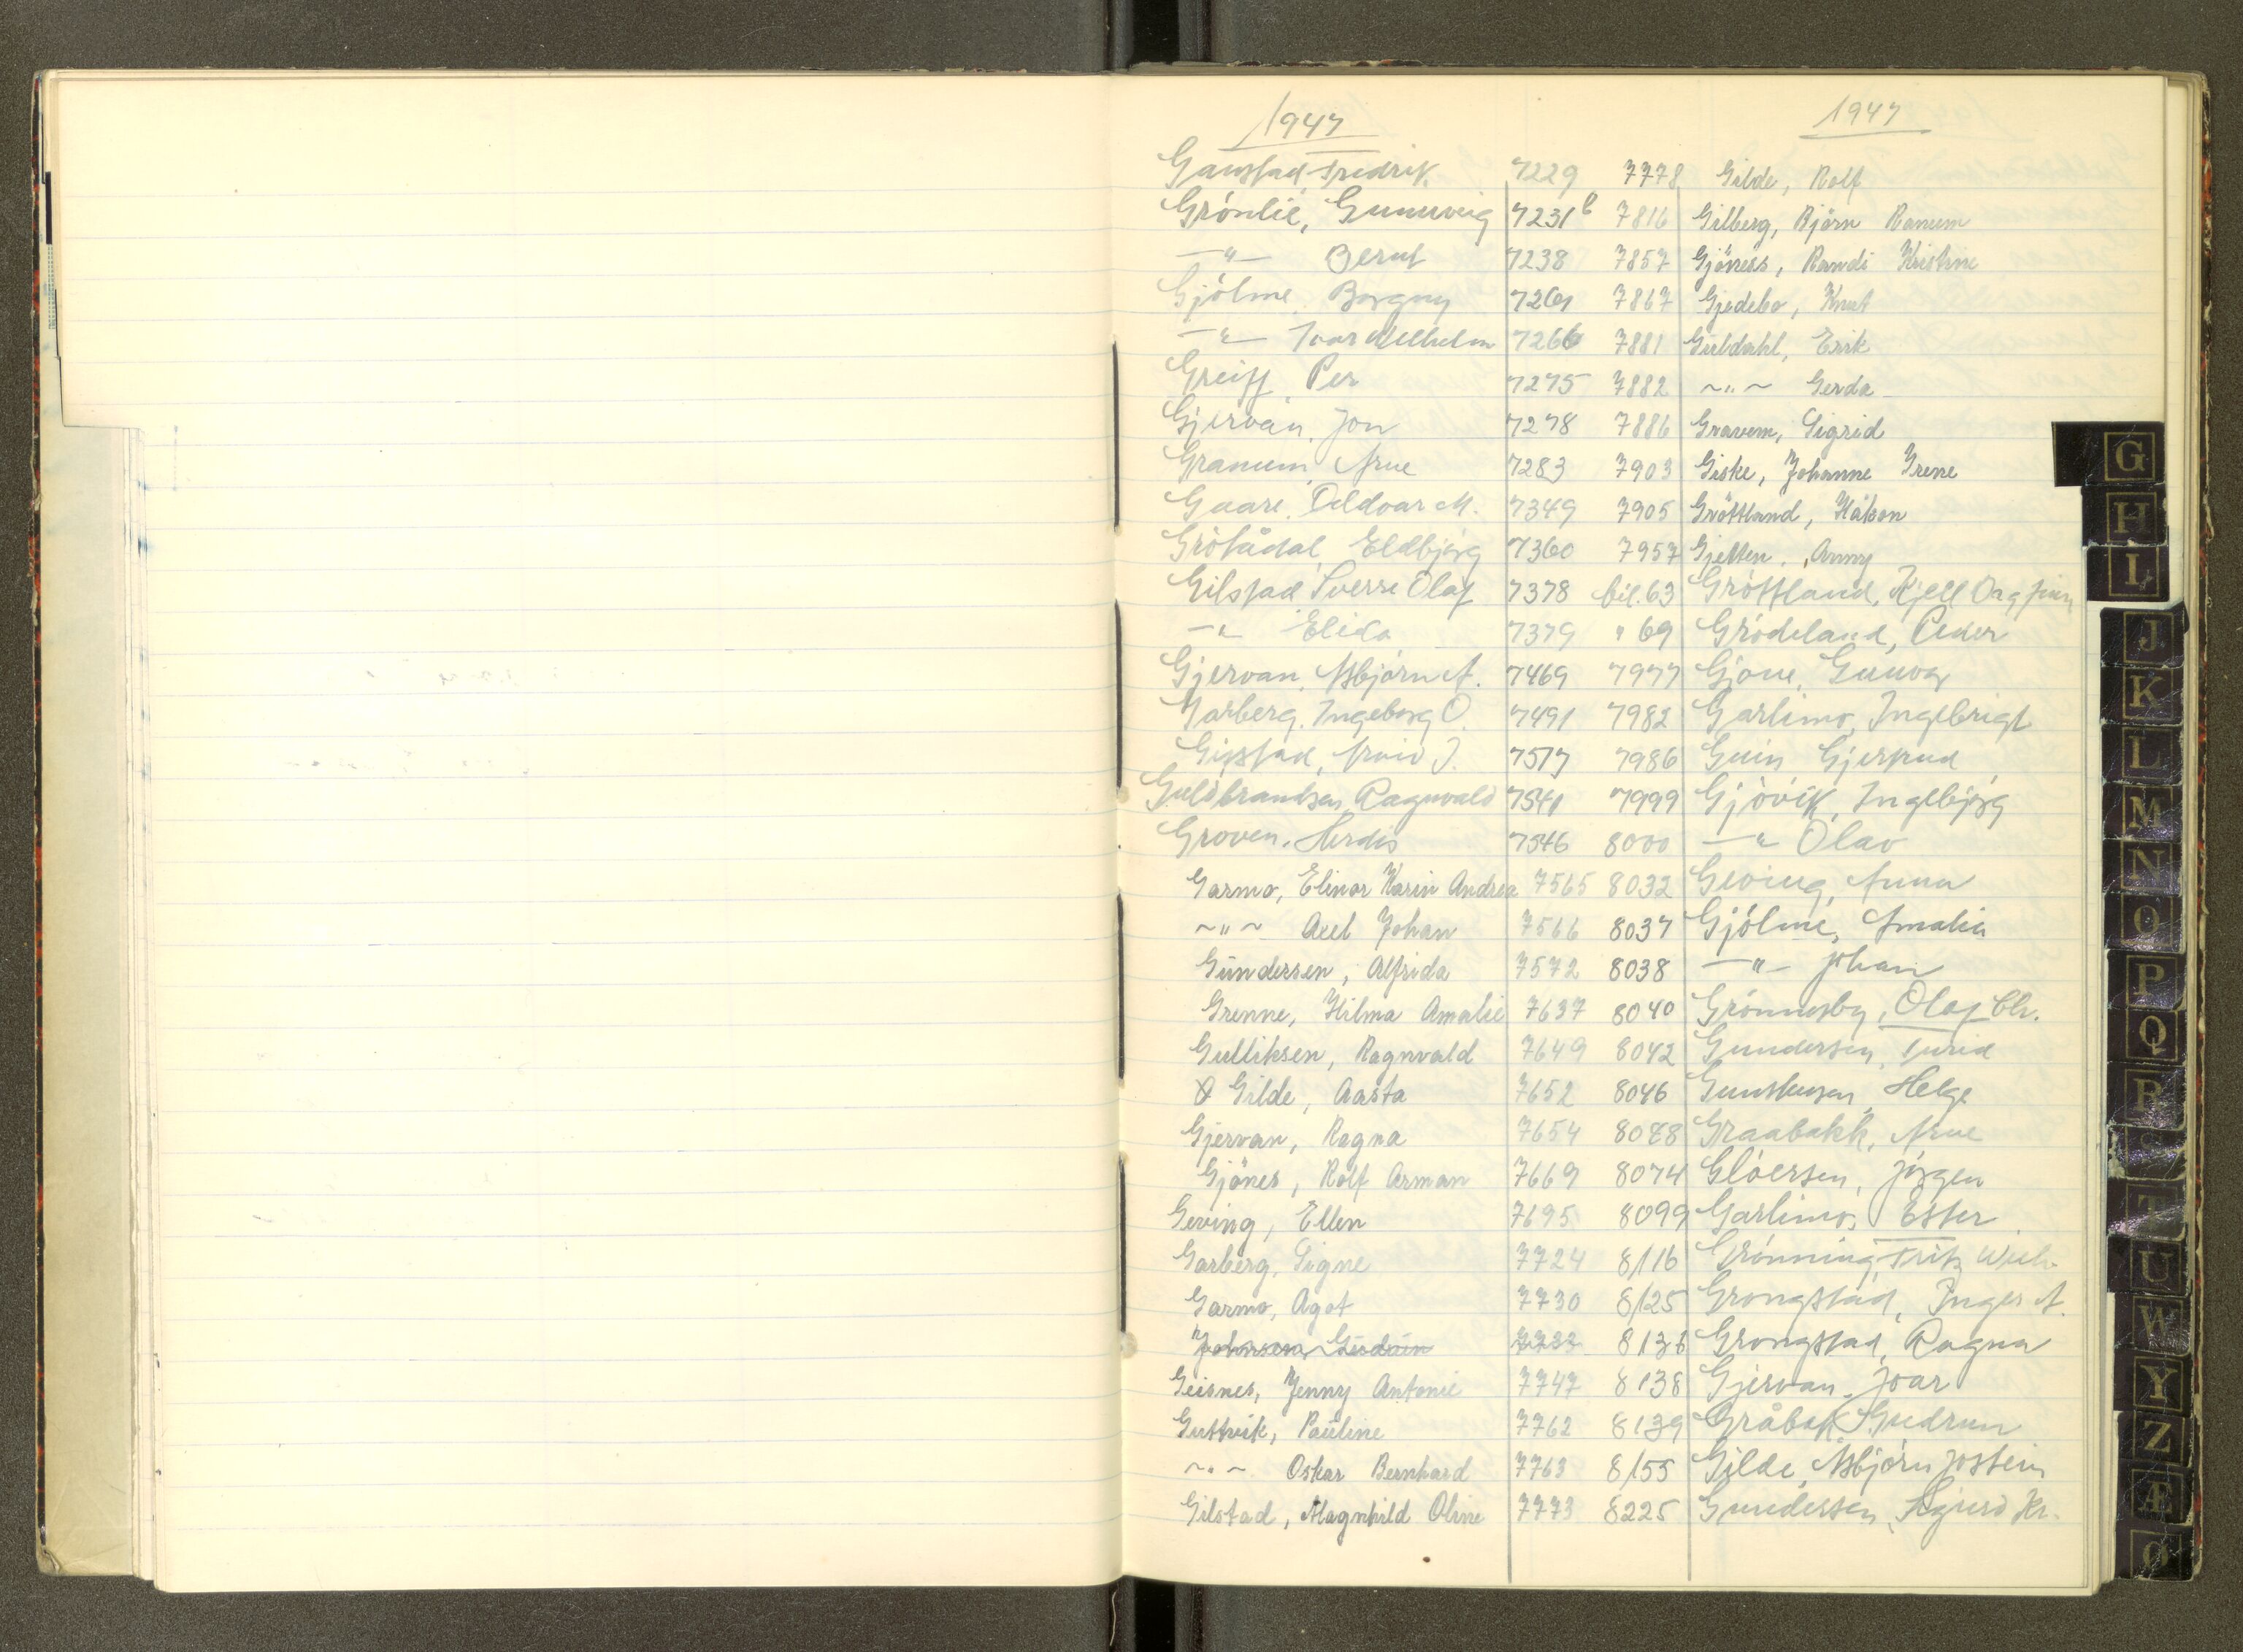 1947 1947
Ganstad, Fredrik 7229 7778 Gilde, Rolf
Grönlie, Gunnveig 7231b 7816 Gilberg, Björn Ranum
—"— Bernt 7238 7857 Gjöness, Randi Kristine
Gjölme, Borgny 7261 7867 Gjedebo, Knut
—"— Ivar Wilhelm 7266 7881 Guldahl, Erik
Greiff, Per 7275 7882 ~"~ Gerda
Gjervan, Jon 7278 7886 Gravem, Sigrid
Granum, Arne 7283 7903 Giske, Johanne Irene
Gaare, Oddvar M. 7349 7905 Gröttland, Håkon
Grötådal, Eldbjörg 7360 7957 Gjetten, Anny
Gilstad Sverre Olaf 7378 bil. 63 Gröttland, Kjell Dagfinn
—"— Elida 7379 " 69 Grödeland, Peder
Gjervan, Asbjörn A. 7469 7977 Gjöne, Gunvor
Garberg, Ingeborg O. 7491 7982 Garlimo, Ingebrigt
Gipstad, Arvid J. 7517 7986 Guin Gjertrud
Guldbrandsen, Ragnvald 7541 7999 Gjövik, Ingebjörg
Groven, Herdis 7546 8000 —"— Olav
Garmo, Elinor Karin Andrea 7565 8032 Geving, Anna
~"~ Axel Johan 7566 8037 Gjölme, Amalia
Gundersen, Alfrida 7572 8038 —"— Johan
Grenne, Hilma Amalie 7637 8040 Grönnesby, Olaf Chr.
Gulliksen, Ragnvald 7649 8042 Gundersen, Turid
Gilde, Aasta 7652 8046 Gunstensen, Helge
Gjervan, Ragna 7654 8048 Graabakk, Arne
Gjönes, Rolf Arman 7669 8074 Glöersen, Jörgen
Geving, Ellen 7695 8099 Garlimo, Ester
Garberg, Signe 7724 8116 Grönning, Fritz Wilh.
Garmo, Agot 7730 8125 Grongstad, Inger A.
Johnsen, Gudrun 7732 8136 Grongstad, Ragna
Geisnes, Jenny Antonie 7747 8138 Gjervan, Joar
Guttvik, Pauline 7762 8139 Gråbak, Gudrun
~"~ Oskar Bernhard 7763 8155 Gilde, Asbjörn Jostein
Gilstad, Magnhild Oline 7773 8225 Gundersen, Sigurd Kr.
G
H
I
J
K
L
M
N
O
P
Q
R
T
U
W
Y
Z
Æ
Ø